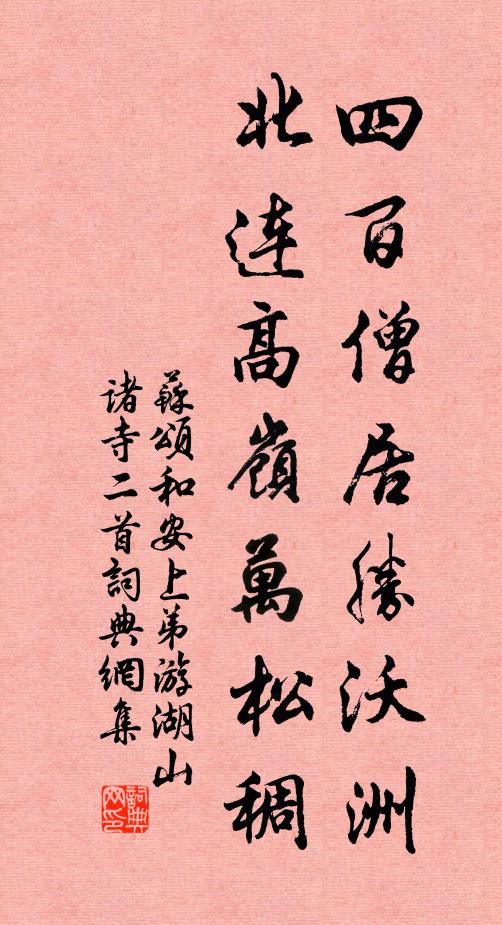 四百僧居勝沃洲
北連高嶺萬松稠
蘇頌和安上弟游湖山
諸寺二首詞典網集
詞典網印